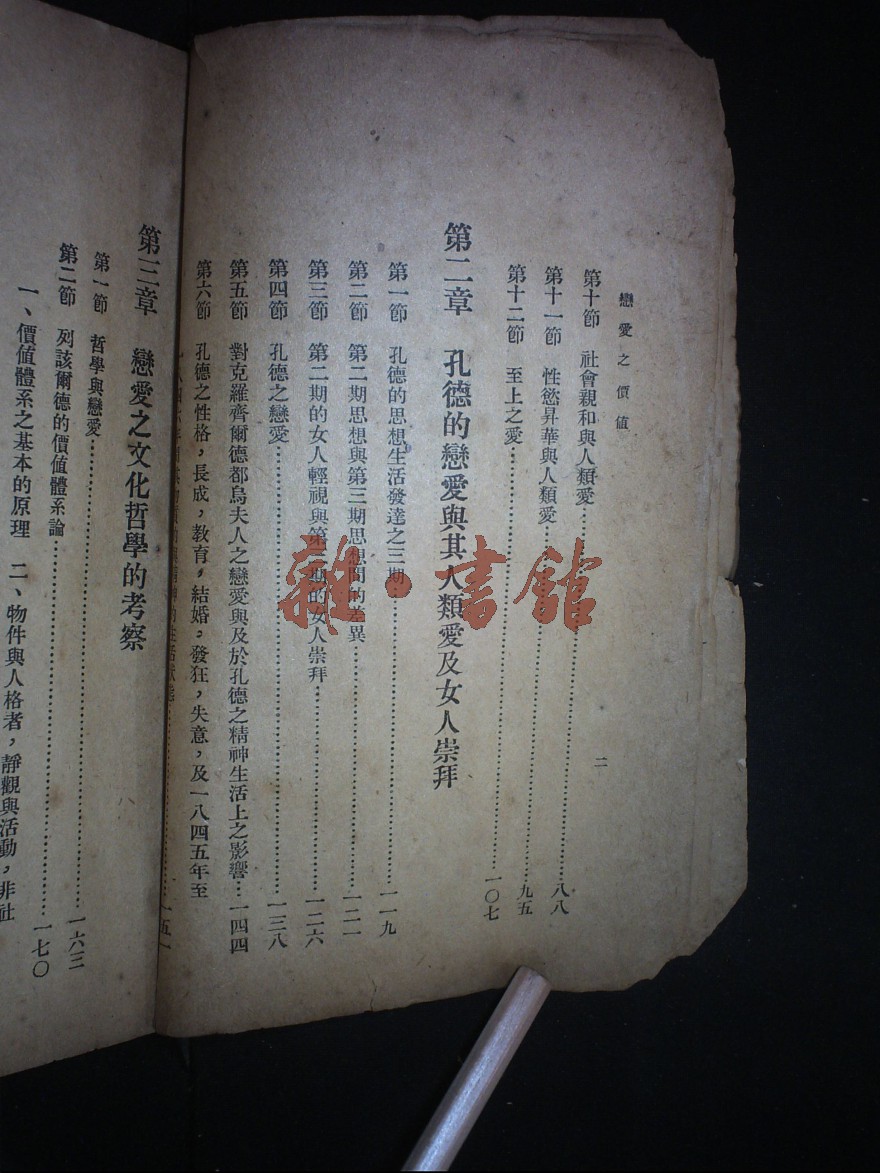 戀愛之價值
二
第十節　社會親和與人類愛……八八
第十一節　性慾昇華與人類愛……九五
第十二節　至上之愛……一〇七
第二章　孔德的戀愛與其人類愛及女人崇拜
第一節　孔德的思想生活發達之三期……一一九
第二節　第二期思想與第三期思想間的差異……一二一
第三節　第二期的女人輕視與第三期的女人崇拜……一二六
第四節　孔德之戀愛……一三八
第五節　對克羅齊爾德都烏夫人之戀愛與及於孔德之精神生活上之影響…一四四
第六節　孔德之性格，長成，教育，結婚，發狂，失意，及一八四五年至
的生活狀態……一五一
第三章　戀愛之文化哲學的考察
第一節　哲學與戀愛……一六三
第二節　列該爾德的價値體系論……一七〇
一、價値體系之基本的原理　二、物件與人格者，靜觀與活動，非社
雜·書館